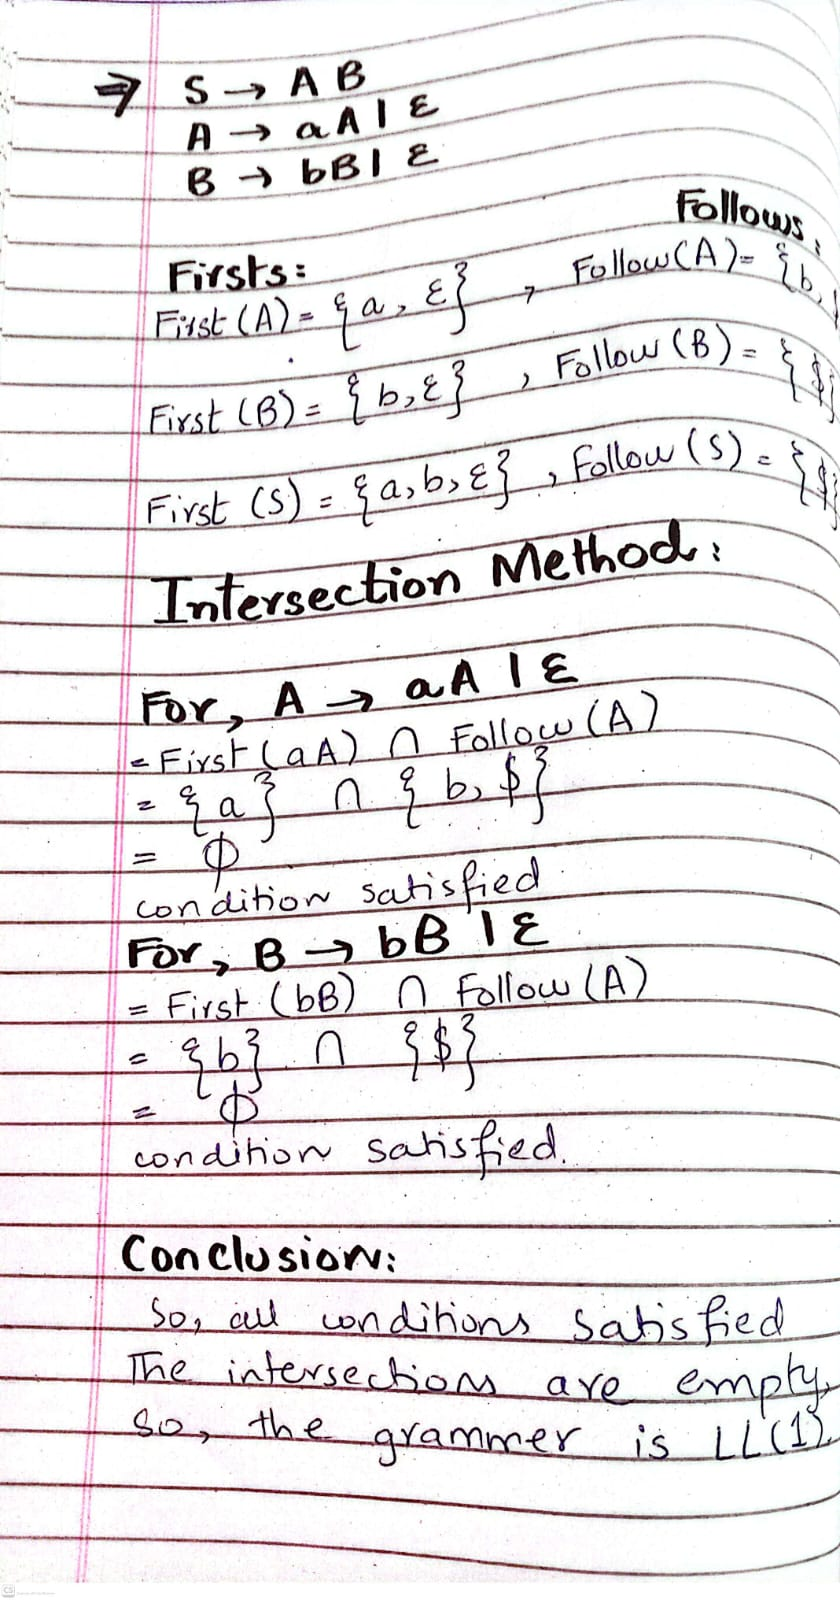 ⇒ S → A B
A → aA | ε
B → bB | ε
Follows:
Firsts:
First (A) = {a, ε} , Follow (A) = {b,
First (B) = {b, ε} , Follow (B) = {$}
First (S) = {a, b, ε} , Follow (S) = {$}
Intersection Method:
For, A → aA | ε
= First (aA) ∩ Follow (A)
= {a} ∩ {b, $}
= ϕ
condition satisfied
For, B → bB | ε
= First (bB) ∩ Follow (A)
= {b} ∩ {$}
= ϕ
condition satisfied.
Conclusion:
So, all conditions satisfied
The intersections are empty,
so, the grammer is LL(1).
CS